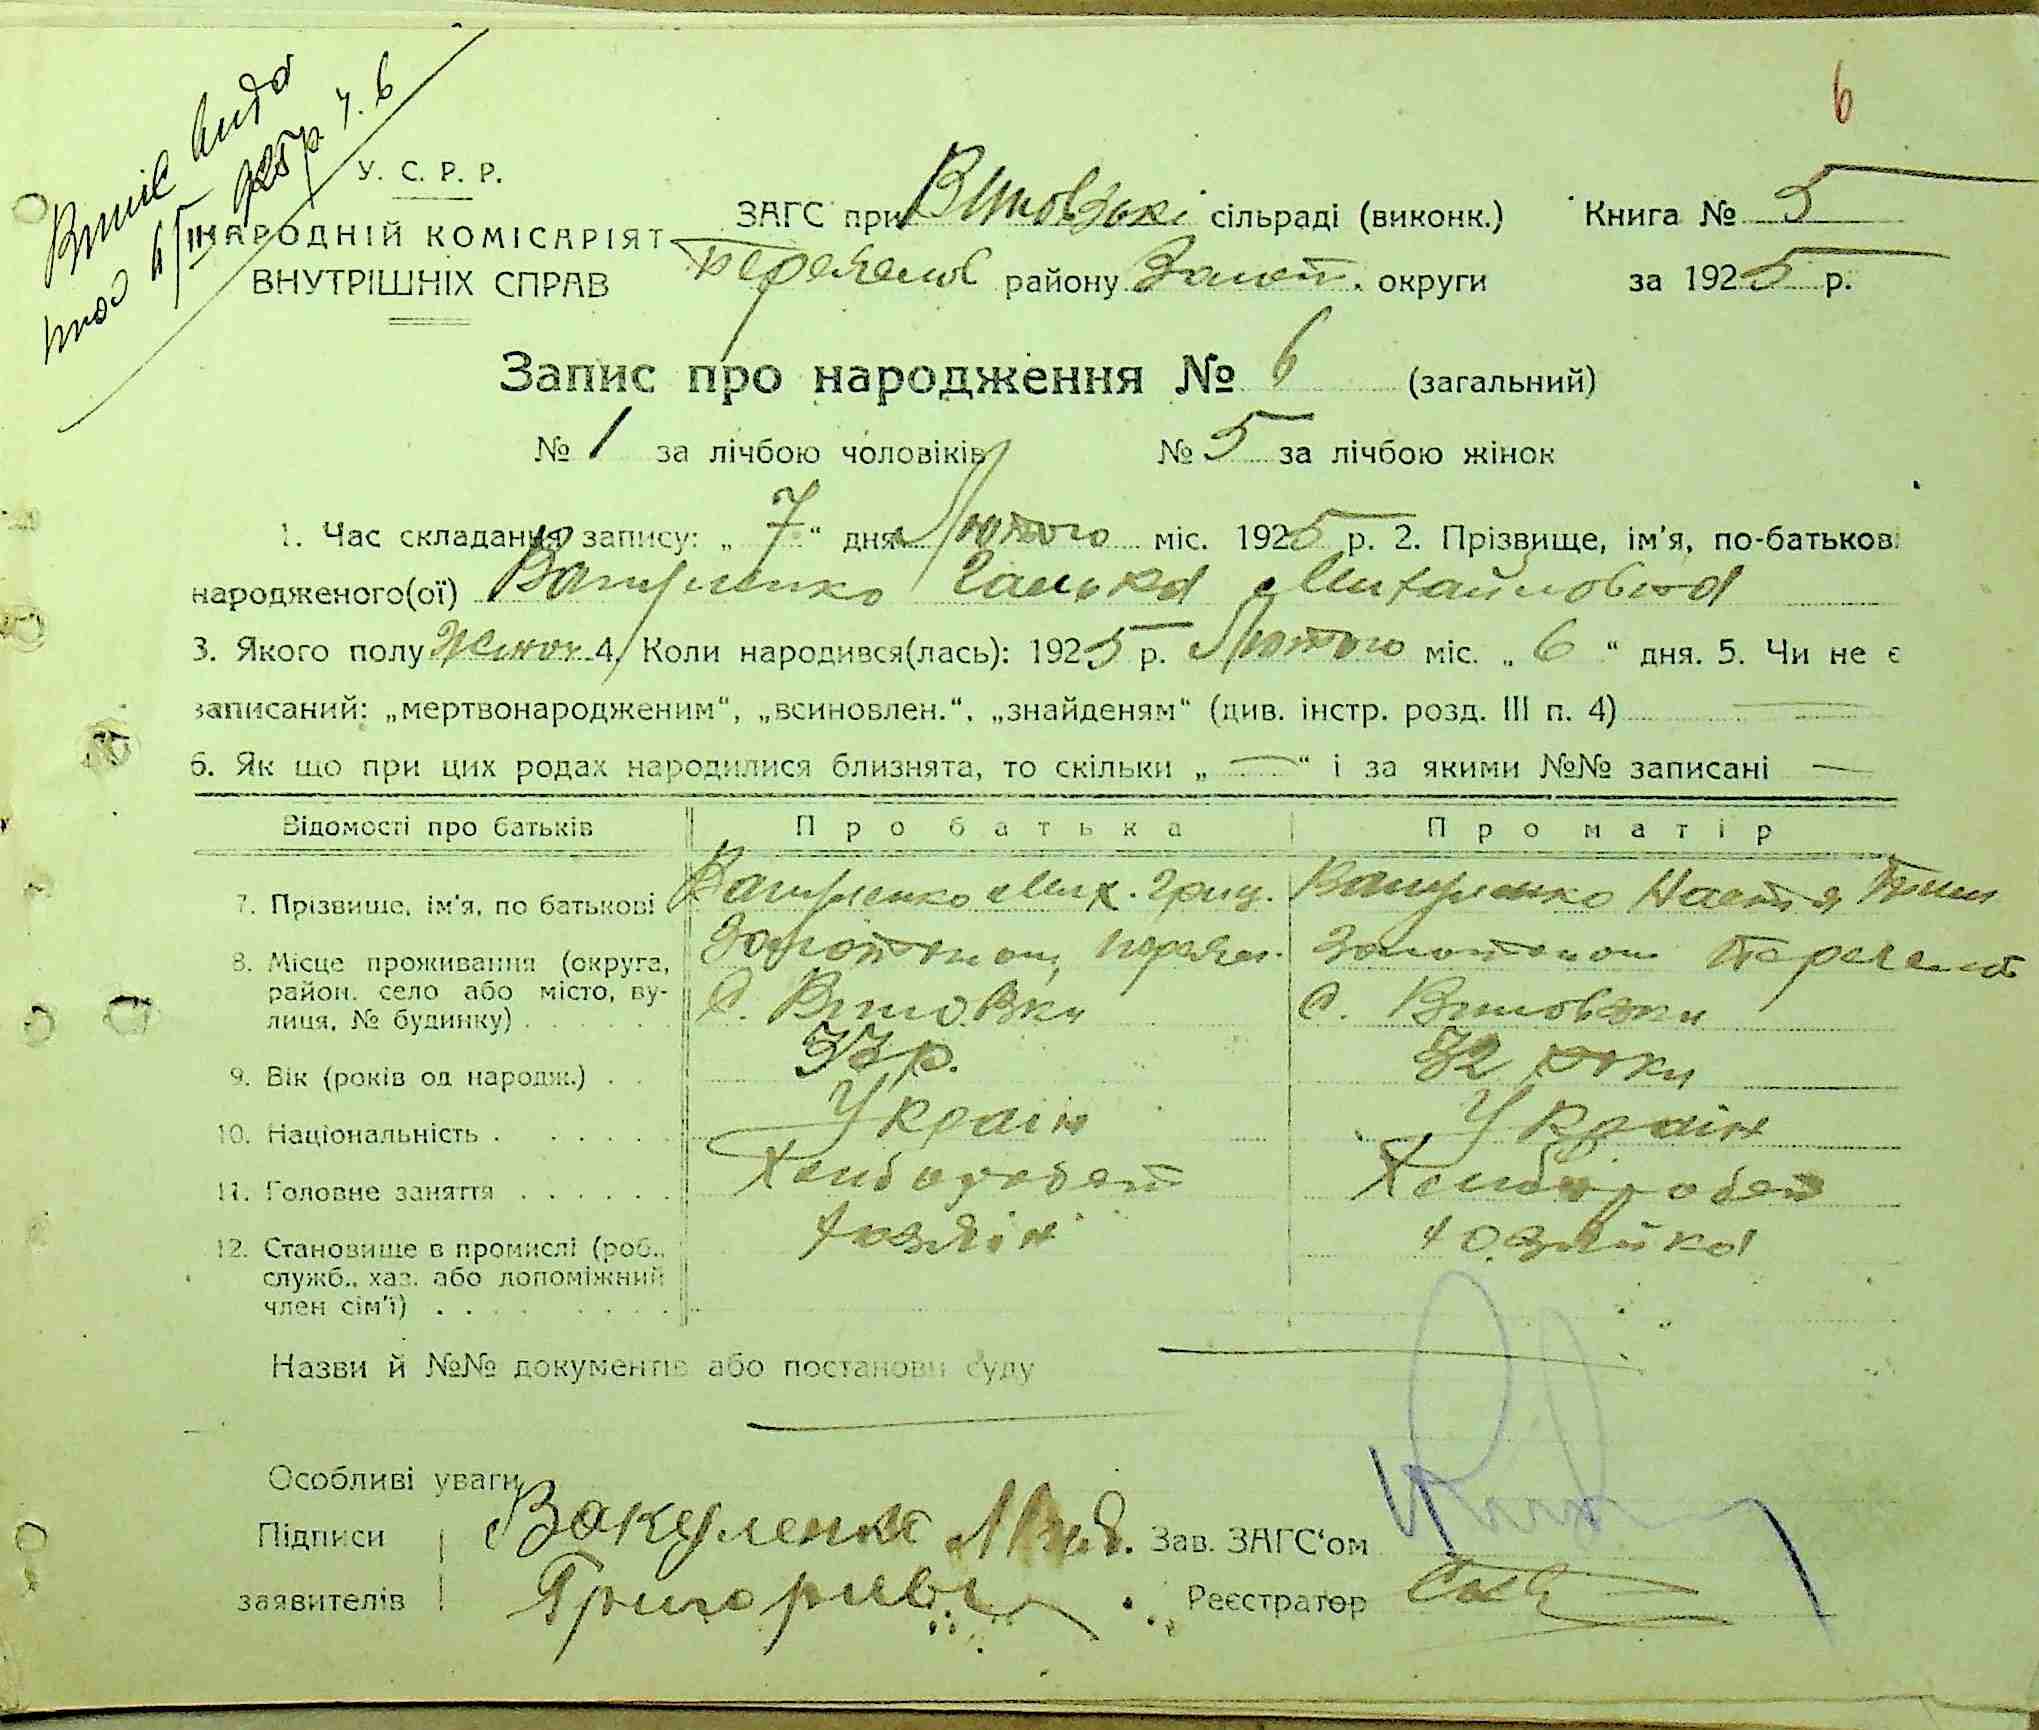 6
Витяг видано
6/III 1925 р. ч. 6
У. С. Р. Р.
НАРОДНІЙ КОМІСАРІЯТ
ВНУТРІШНІХ СПРАВ
ЗАГС при сільраді (виконк.) Книга № 5
району Золот. округи за 1925 р.
Запис про народження № 6 (загальний)
№ 1 за лічбою чоловіків № 5 за лічбою жінок
1. Час складання запису: „ 7 “ дня Лютого міс. 1925 р. 2. Прізвище, ім'я, по-батькові
народженого(ої) Вакуленко Галька Михайловна
3. Якого полу Жіноч 4. Коли народився(лась): 1925 р. Лютого міс. „ 6 “ дня. 5. Чи не є
записаний: „мертвонародженим“, „всиновлен.“, „знайденям“ (див. інстр. розд. III п. 4)
6. Як що при цих родах народилися близнята, то скільки „ — “ і за якими №№ записані —
Відомості про батьків Про батька Про матір
7. Прізвище, ім'я, по батькові Вакуленко Мих. Григ. Вакуленко Настя
8. Місце проживання (округа, Золотонош Переясл. Золотонош
район, село або місто, ву- с. с.
лиця, № будинку)
9. Вік (років од народж.) 33 р. 32 роки
10. Національність Україн Україн
11. Головне заняття Хлібороб Хлібороб
12. Становище в промислі (роб., хозяїн хозяйка
служб., хаз. або допоміжний
член сім'ї)
Назви й №№ документів або постанови суду
Особливі уваги
Підписи Вакуленко Мих. Зав. ЗАГС'ом
заявителів Григориевич Реєстратор